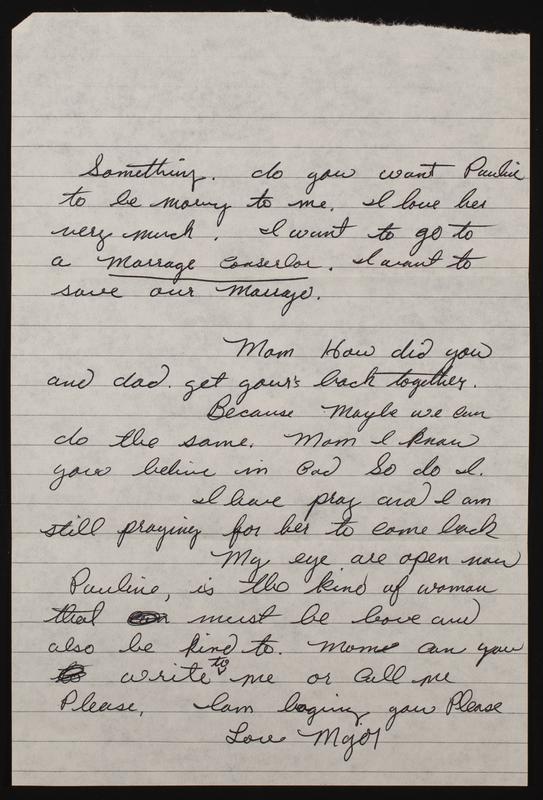 Something. do you want Pauline
to be marry to me. I love her
very much. I want to go to
a Marrage Conserlor. I want to
save our Marrage.
Mom How did you
and dad. get your's back together.
Because Maybe we can
do the same. Mom I know
you belive in God So do I.
I have pray and I am
still praying for her to come back
My eye are open now
Pauline, is the kind of woman
that must be love and
also be kind to. Mom can you
write to me or Call me
Please, I am beging you Please
Love